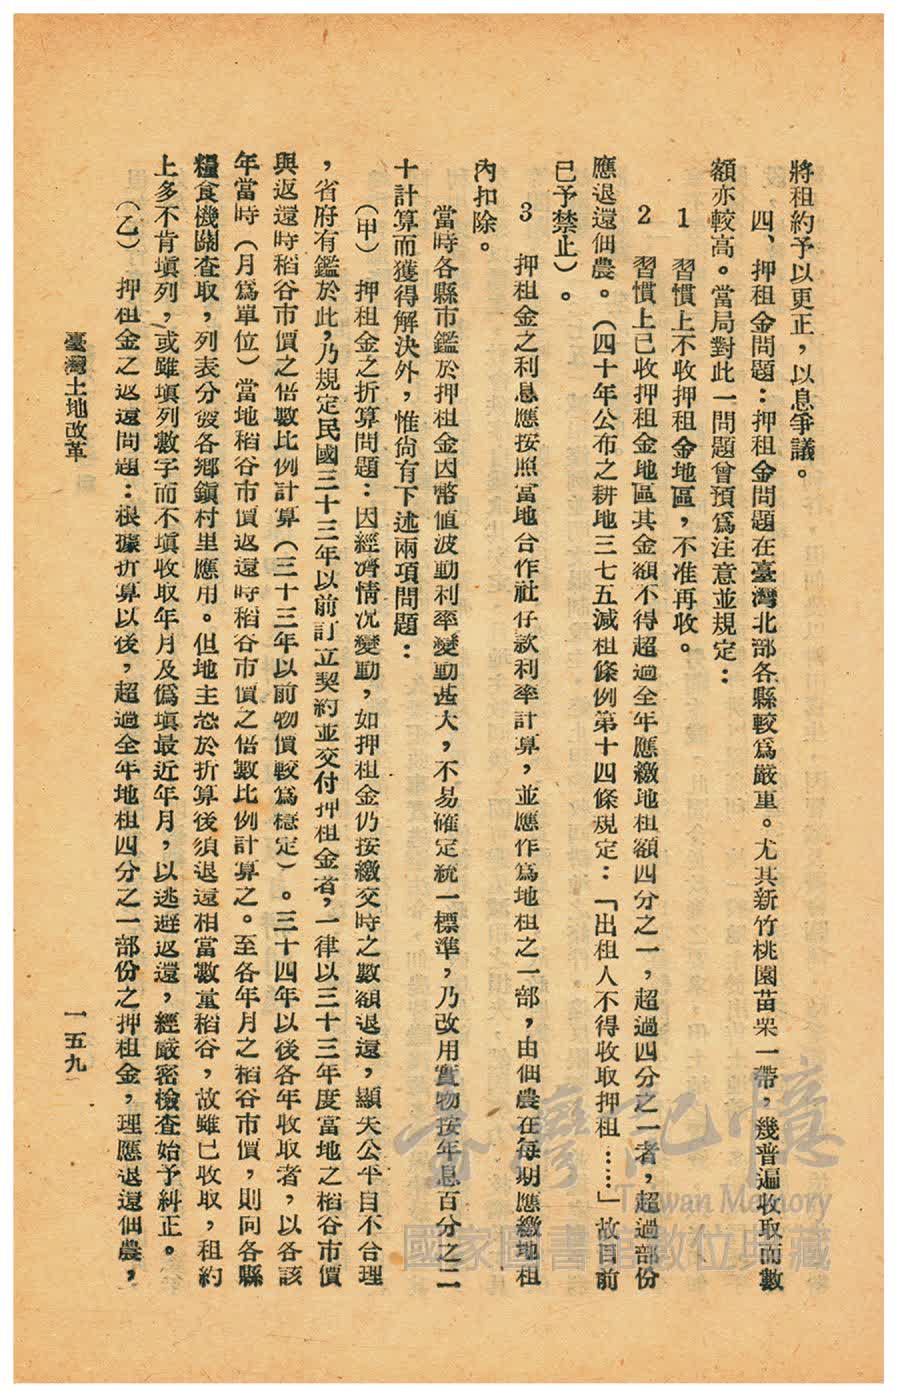 將租約予以更正，以息爭議。
四、押租金問題：押租金問題在臺灣北部各縣較爲嚴重。尤其新竹桃園苗栗一帶，幾普遍收取而數
額亦較高。當局對此一問題曾預爲注意並規定：
1　習慣上不收押租金地區，不准再收。
2　習慣上已收押租金地區其金額不得超過全年應繳地租額四分之一，超過四分之一者，超過部份
應退還佃農。（四十年公布之耕地三七五減租條例第十四條規定：「出租人不得收取押租……」故目前
已予禁止）。
3　押租金之利息應按照當地合作社存款利率計算，並應作爲地租之一部，由佃農在每期應繳地租
內扣除。
當時各縣市鑑於押租金因幣値波動利率變動甚大，不易確定統一標準，乃改用實物按年息百分之二
十計算而獲得解決外，惟尙有下述兩項問題：
（甲）　押租金之折算問題：因經濟情況變動，如押租金仍按繳交時之數額退還，顯失公平自不合理
，省府有鑑於此，乃規定民國三十三年以前訂立契約並交付押租金者，一律以三十三年度當地之稻谷市價
與返還時稻谷市價之倍數比例計算（三十三年以前物價較爲穩定）。三十四年以後各年收取者，以各該
年當時（月爲單位）當地稻谷市價返還時稻谷市價之倍數比例計算之。至各年月之稻谷市價，則向各縣
糧食機關查取，列表分發各鄉鎭村里應用。但地主恐於折算後須退還相當數量稻谷，故雖已收取，租約
上多不肯塡列，或雖塡列數字而不塡收取年月及僞塡最近年月，以逃避返還，經嚴密檢查始予糾正。
（乙）　押租金之返還問題：根據折算以後，超過全年地租四分之一部份之押租金，理應退還佃農，
臺灣土地改革
一五九
臺灣記憶
Taiwan Memory
國家圖書館數位典藏